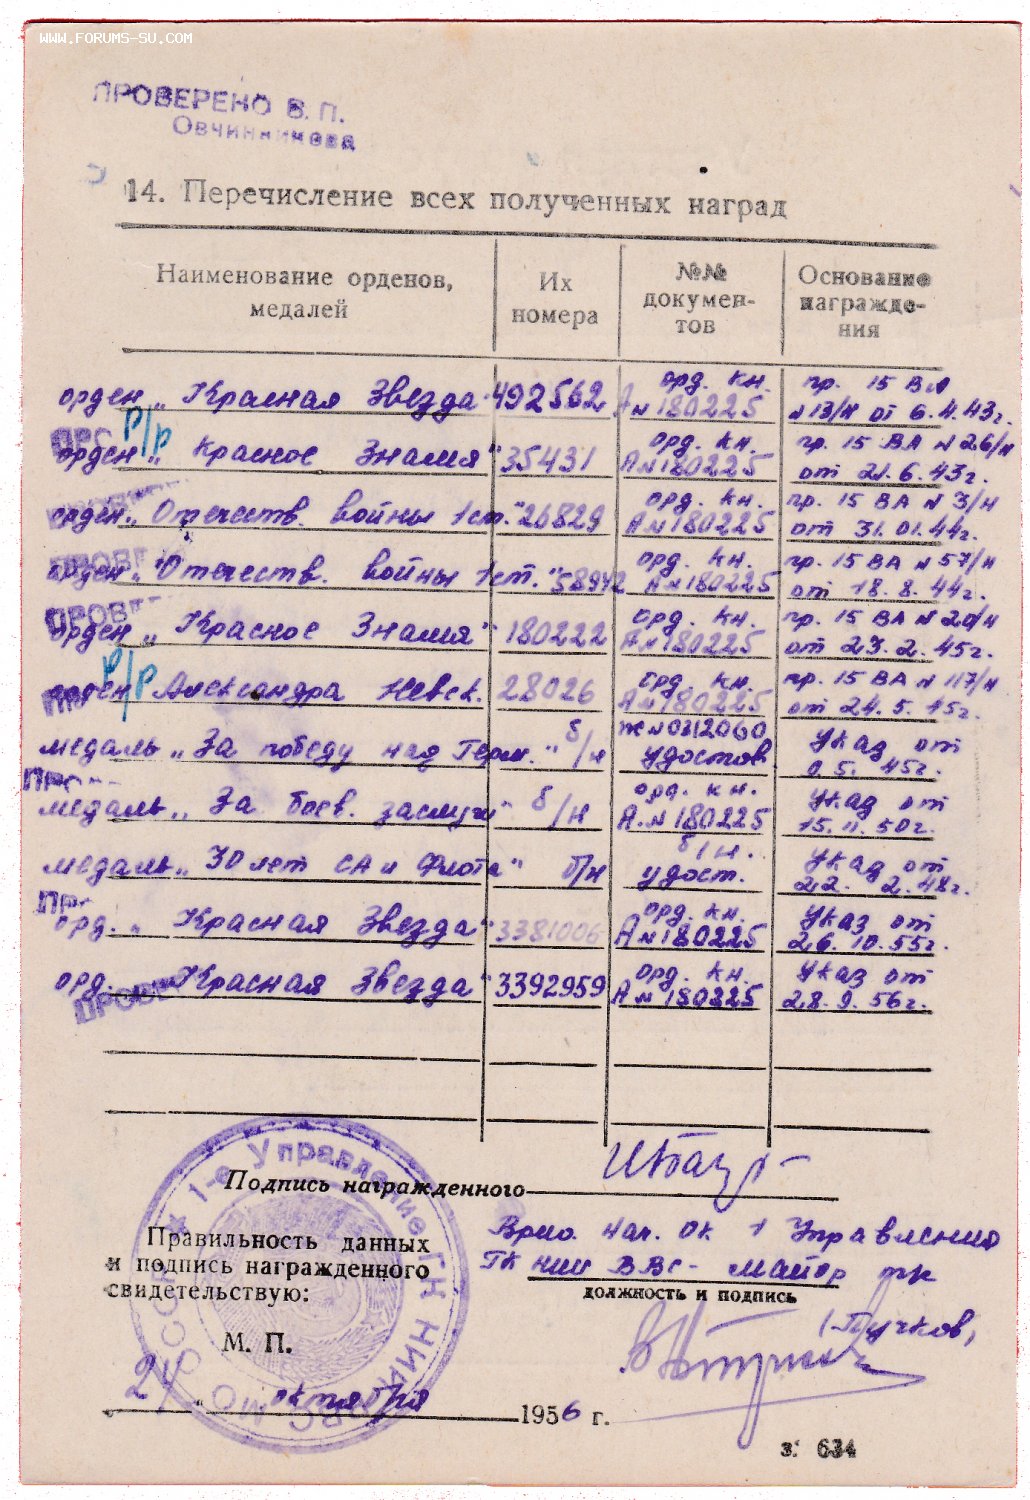 WWW.FORUMS-SU.COM
ПРОВЕРЕНО В. П.
Овчинникова
14. Перечисление всех полученных наград
Наименование орденов, медалей
Их номера
№№ документов
Основание награждения
орден „Красная Звезда" 492562 орд. кн. А № 180225 пр. 15 ВА № 13/н от 6.4.43г.
орден „Красное Знамя" 35431 орд. кн. А № 180225 пр. 15 ВА № 26/н от 21.6.43г.
орден „Отечеств. войны 1 ст." 26829 орд. кн. А № 180225 пр. 15 ВА № 3/н от 31.01.44г.
орден „Отечеств. войны 1 ст." 58942 орд. кн. А № 180225 пр. 15 ВА № 57/н от 18.8.44г.
орден „Красное Знамя" 180222 орд. кн. А № 180225 пр. 15 ВА № 20/н от 23.2.45г.
орден Александра Невск. 28026 орд. кн. А № 180225 пр. 15 ВА № 117/н от 24.5.45г.
медаль „За победу над Герм." б/н Ж № 0312060 удостов Указ от 9.5.45г.
медаль „За боев. заслуги" б/н орд. кн. А. № 180225 Указ от 15.11.50г.
медаль „30 лет СА и Флота" б/н б/н. удост. Указ от 22.2.48г.
орд. „Красная Звезда" 3381006 орд. кн. А № 180225 Указ от 26.10.55г.
орд. Красная Звезда" 3392959 орд. кн. А № 180225 Указ от 28.9.56г.
Подпись награжденного
Правильность данных
и подпись награжденного
свидетельствую:
М. П.
Врио. нач. ОК 1 Управления
ГК НИИ ВВС - майор
должность и подпись
(Пучков)
24 „ октября 1956 г.
з. 634
1-е Управление ГК НИИ ВВС МО СССР